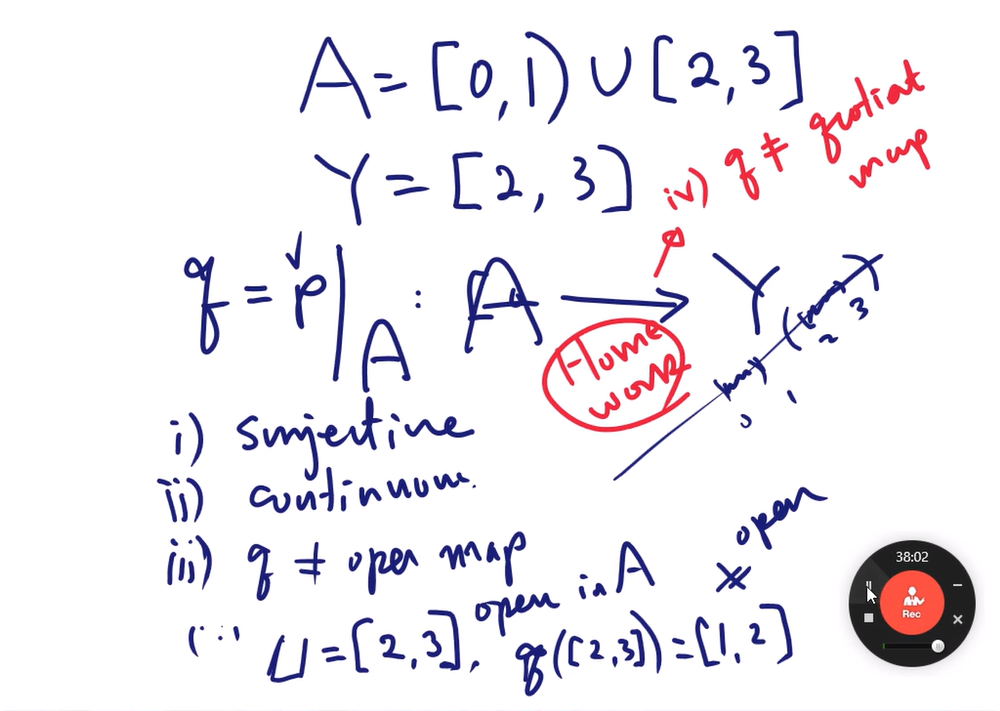 A = [0, 1) ∪ [2, 3]
Y = [2, 3]
iv) q ≠ quotient map
q = p|_A : A → Y
Home work
0 1 2 3
i) surjective
ii) continuous.
iii) q ≠ open map
(∵ U = [2, 3], open in A q([2, 3]) = [1, 2] open
38:02
Rec